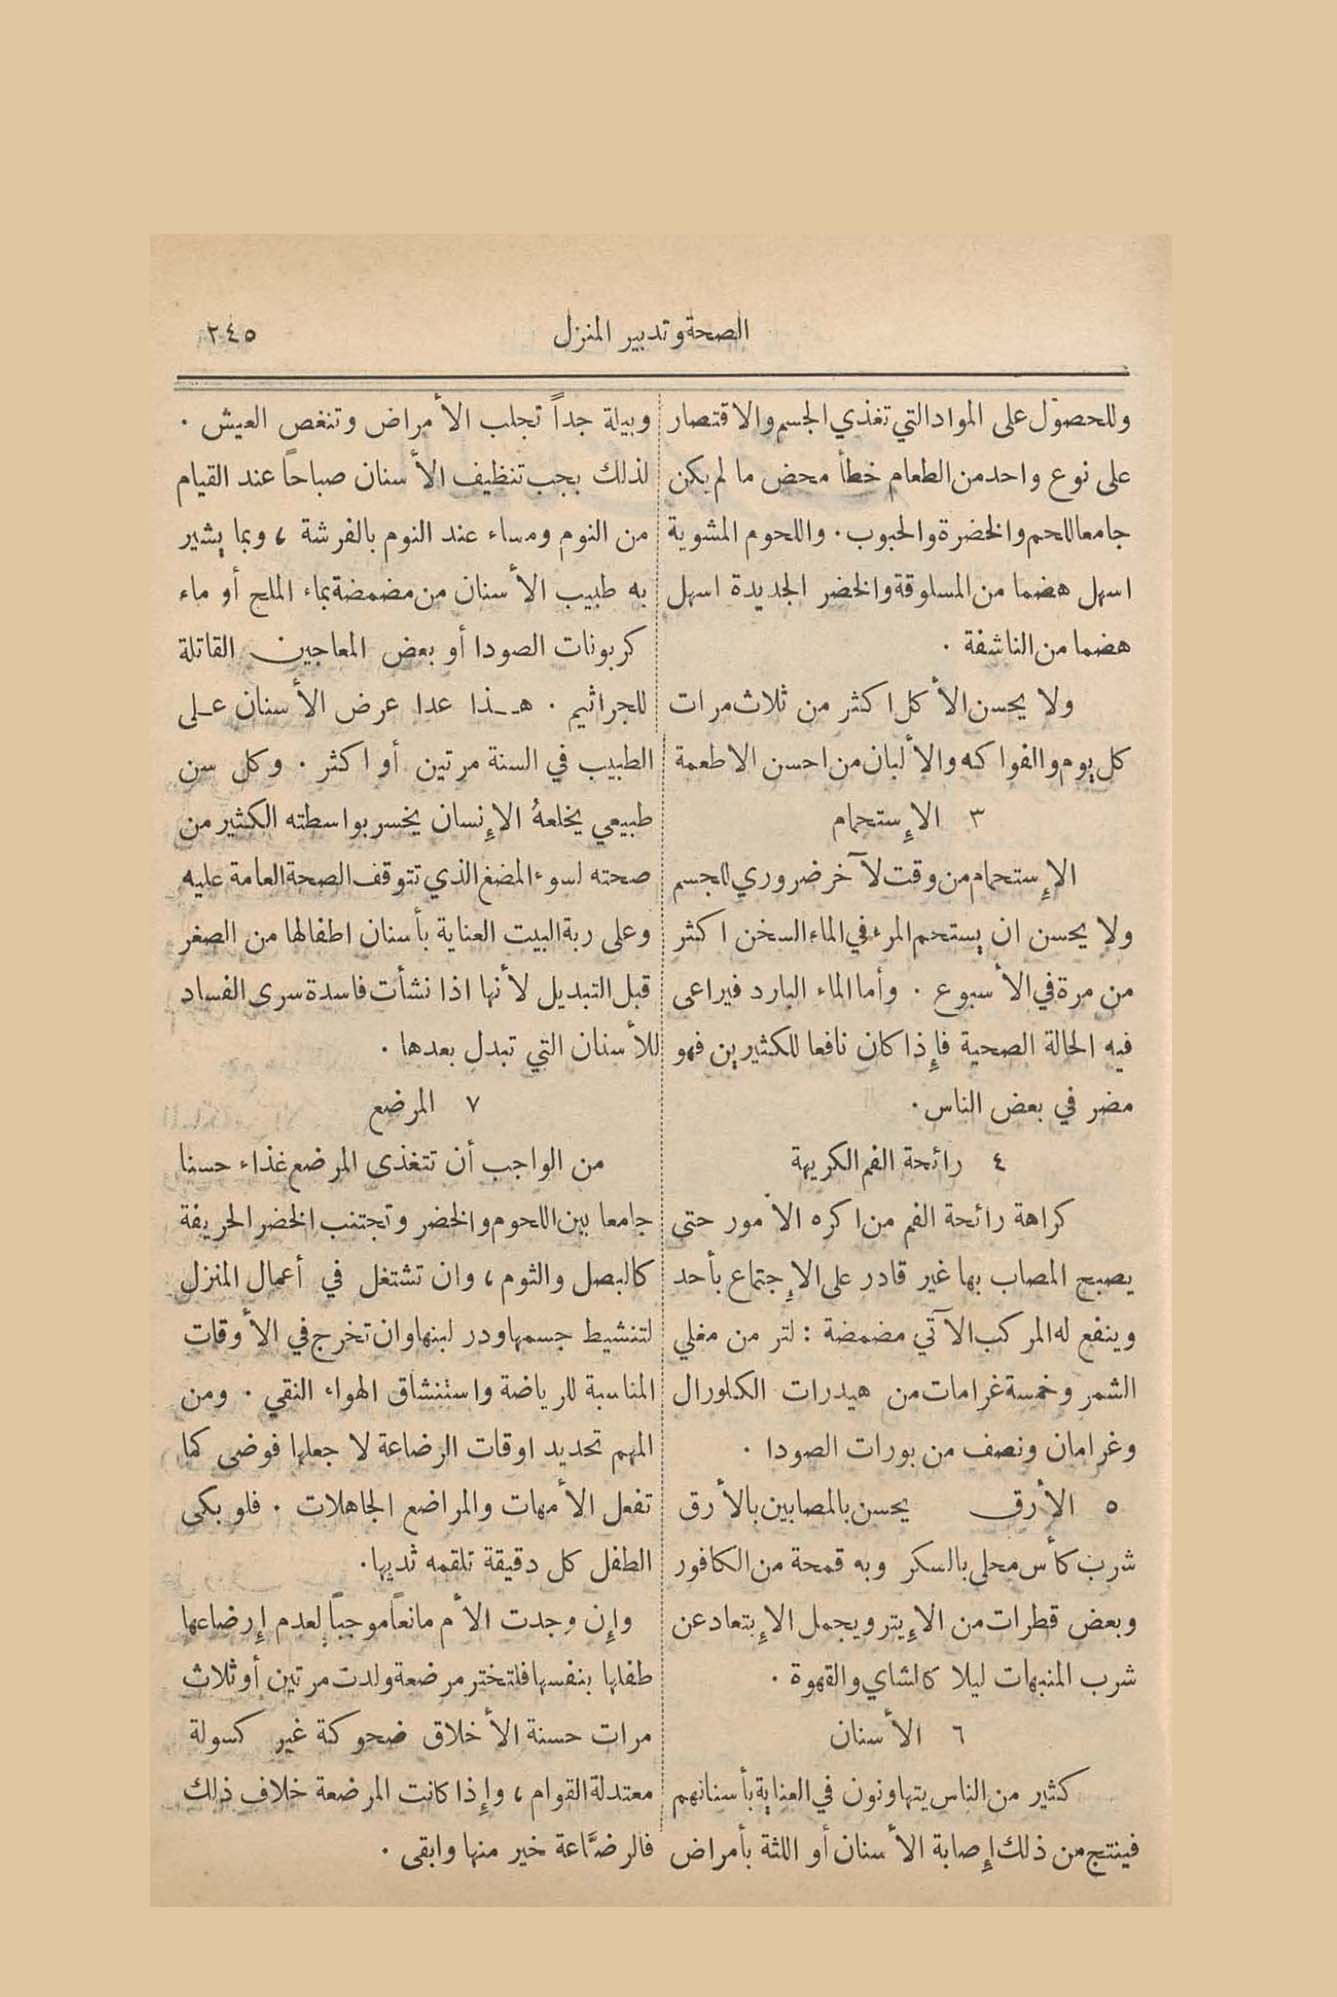 الصحة وتدبير المنزل
٢٤٥
وللحصول على المواد التي تغذي الجسم والاقتصار
على نوع واحد من الطعام خطأ محض ما لم يكن
جامعا للحم والخضرة والحبوب. واللحوم المشوية
اسهل هضما من المسلوقة والخضر الجديدة اسهل
هضما من الناشفة.
ولا يحسن الأكل اكثر من ثلاث مرات
كل يوم والفواكه والألبان من احسن الاطعمة
٣ الإستحمام
الإستحمام من وقت لآخر ضروري للجسم
ولا يحسن ان يستحم المرء في الماء السخن اكثر
من مرة في الأسبوع. وأما الماء البارد فيراعى
فيه الحالة الصحية فإذا كان نافعا للكثيرين فهو
مضر في بعض الناس.
٤ رائحة الفم الكريهة
كراهة رائحة الفم من اكره الأمور حتى
يصبح المصاب بها غير قادر على الإجتماع بأحد
وينفع له المركب الآتي مضمضة: لتر من مغلي
الشمر وخمسة غرامات من هيدرات الكلورال
وغرامان ونصف من بورات الصودا.
٥ الأرق يحسن بالمصابين بالأرق
شرب كأس محلى بالسكر وبه قمحة من الكافور
وبعض قطرات من الإيتر ويجمل الإبتعاد عن
شرب المنبهات ليلا كالشاي والقهوة.
٦ الأسنان
كثير من الناس يتهاونون في العناية بأسنانهم
فينتج من ذلك إصابة الأسنان أو اللثة بأمراض
وبيلة جداً تجلب الأمراض وتنغص العيش.
لذلك يجب تنظيف الأسنان صباحاً عند القيام
من النوم ومساء عند النوم بالفرشة، وبما يشير
به طبيب الأسنان من مضمضة بماء الملح أو ماء
كربونات الصودا أو بعض المعاجين القاتلة
للجراثيم. هــذا عدا عرض الأسنان عـلى
الطبيب في السنة مرتين أو اكثر. وكل سن
طبيعي يخلعهُ الإنسان يخسر بواسطته الكثير من
صحته لسوء المضغ الذي تتوقف الصحة العامة عليه
وعلى ربة البيت العناية بأسنان اطفالها من الصغر
قبل التبديل لأنها اذا نشأت فاسدة سرى الفساد
للأسنان التي تبدل بعدها.
٧ المرضع
من الواجب أن تتغذى المرضع غذاء حسنا
جامعا بين اللحوم والخضر وتجتنب الخضر الحريفة
كالبصل والثوم، وان تشتغل في أعمال المنزل
لتنشيط جسمها ودر لبنها وان تخرج في الأوقات
المناسبة للرياضة واستنشاق الهواء النقي. ومن
المهم تحديد اوقات الرضاعة لا جعلها فوضى كما
تفعل الأمهات والمراضع الجاهلات. فلو بكى
الطفل كل دقيقة تلقمه ثديها.
وإن وجدت الأم مانعاً موجباً لعدم إرضاعها
طفلها بنفسها فلتختر مرضعة ولدت مرتين أو ثلاث
مرات حسنة الأخلاق ضحوكة غير كسولة
معتدلة القوام، وإذا كانت المرضعة خلاف ذلك
فالرضَّاعة خير منها وابقى.